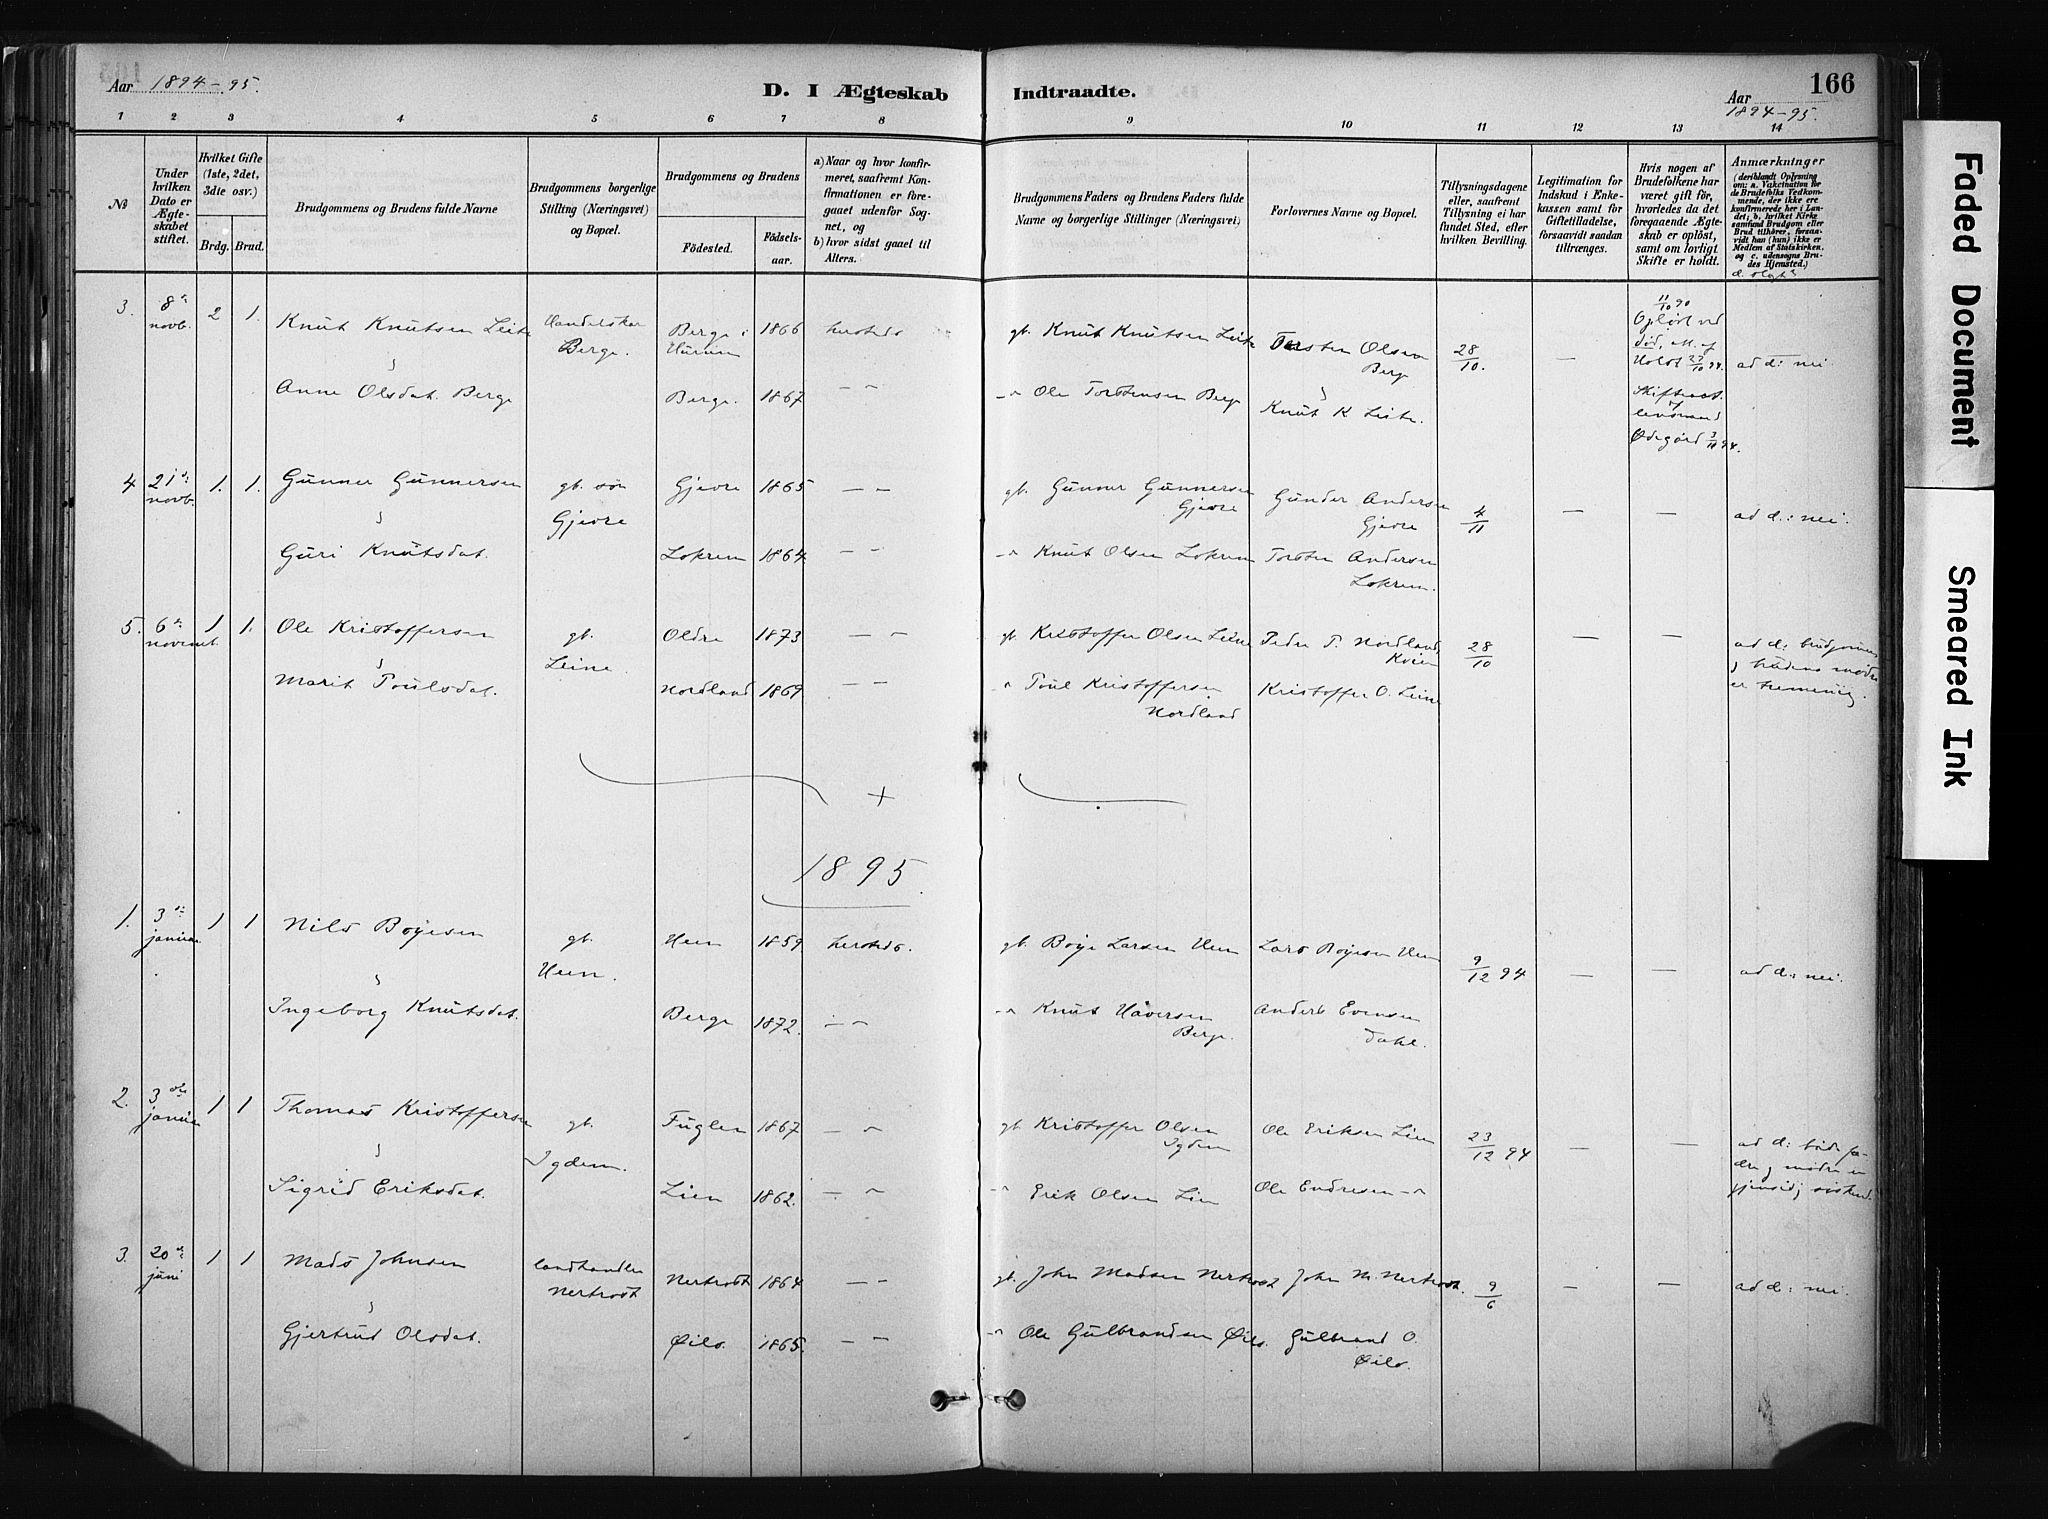 Aar 1894-95.
D. I Ægteskab
Indtraadte.
166
Aar 1894-95.
1 2 3 4 5 6 7 8 9 10 11 12 13 14
No
Under hvilken Dato er Ægteskabet stiftet.
Hvilket Gifte (1ste, 2det, 3die osv.)
Brdg. Brud.
Brudgommens og Brudens fulde Navne
Brudgommens borgerlige Stilling (Næringsvei) og Bopæl.
Brudgommens og Brudens
Födested.
Födselsaar.
a) Naar og hvor konfirmeret, saafremt Konfirmationen er foregaaet udenfor Sognet, og
b) hvor sidst gaaet til Alters.
Brudgommens Faders og Brudens Faders fulde Navne og borgerlige Stillinger (Næringsvei)
Forlovernes Navne og Bopæl.
Tillysningsdagene eller, saafremt Tillysning ei har fundet Sted, efter hvilken Bevilling.
Legitimation for Indskud i Enkekassen samt for Giftetilladelse, forsaavidt saadan tiltrænges.
Hvis nogen af Brudefolkene har været gift før, hvorledes da det foregaaende Ægteskab er oplöst, samt om lovligt Skifte er holdt.
Anmærkninger (deriblandt Oplysning om: a. Vakcination for de Brudefolks Vedkommende, der ikke ere konfirmerede her i Landet; b. hvilket Kirkesamfund Brudgom eller Brud tilhörer, forsaavidt han (hun) ikke er Medlem af Statskirken, og c. udensogns Brudes Hjemsted.)
d. slegt?
3. 8de novb. 2 1. Knut Knutsen Leite Handelskar Berge. Berge i Hurum 1866 hersteds gb. Knut Knutsen Leite Torsten Olsen Berge 28/10. — 11/10 90 Opløst ved død, ad d: nei.
& Anne Olsdat. Berge Berge. 1867 -"- -"- Ole Torstensen Berge & Knut K Leite. Skifteatt. Ødegård 3/11 94.
4 21de novb. 1. 1. Gunner Gunnersen gb. søn Gjevre Gjevre 1865 -"- gb. Gunner Gunnersen Gjevre Gunder Andersen Gjevre 4/11 — — ad d.: nei.
& Guri Knutsdat. Lokren 1864 -"- -"- Knut Olsen Lokren Torsten Andersen Lokren.
5. 6te novemt. 1 1. Ole Kristoffersen gb. Leine. Oldre 1873 -"- gb. Kristoffer Olsen Leine Peder P. Nordland, Kvien 28/10 — — ad d: brudgommen og brudens mødre er tremenig.
& Marit Poulsdat. Nordland 1869 -"- " Poul Kristoffersen Nordland Kristoffer O. Leine
1895.
1. 3die januar 1 1 Nils Boyesen gb. Heen. Heen 1859 herstds. gb. Boye Larsen Heen Lars Boyesen Heen 9/12 94 — — ad d: nei.
& Ingeborg Knutsdat. Berge 1872. -"- -"- Knut Håversen Berge. Anders Evensen Dahl.
2. 3die januar 1 1 Thomas Kristoffersen gb. Igdem. Fuglen 1867 -"- gb. Kristoffer Olsen Igdem Ole Eriksen Lien 23/12 94 — — ad d: både fædre og mødre er gjensidig søskend.
& Sigrid Eriksdat. Lien 1862. -"- -"- Erik Olsen Lien Ole Endresen -"-
3. 20de juni 1 1 Mads Johnsen landhandler Nertrost Nertrost 1864 -"- gb. John Madsen Nertrost John M. Nertrost. 9/6 — — ad d: nei.
& Gjertrud Olsdat. Øilo. 1865. -"- -"- Ole Gulbrandsen Øilo. Gulbrand O. Øilo.
Faded Document
Smeared Ink